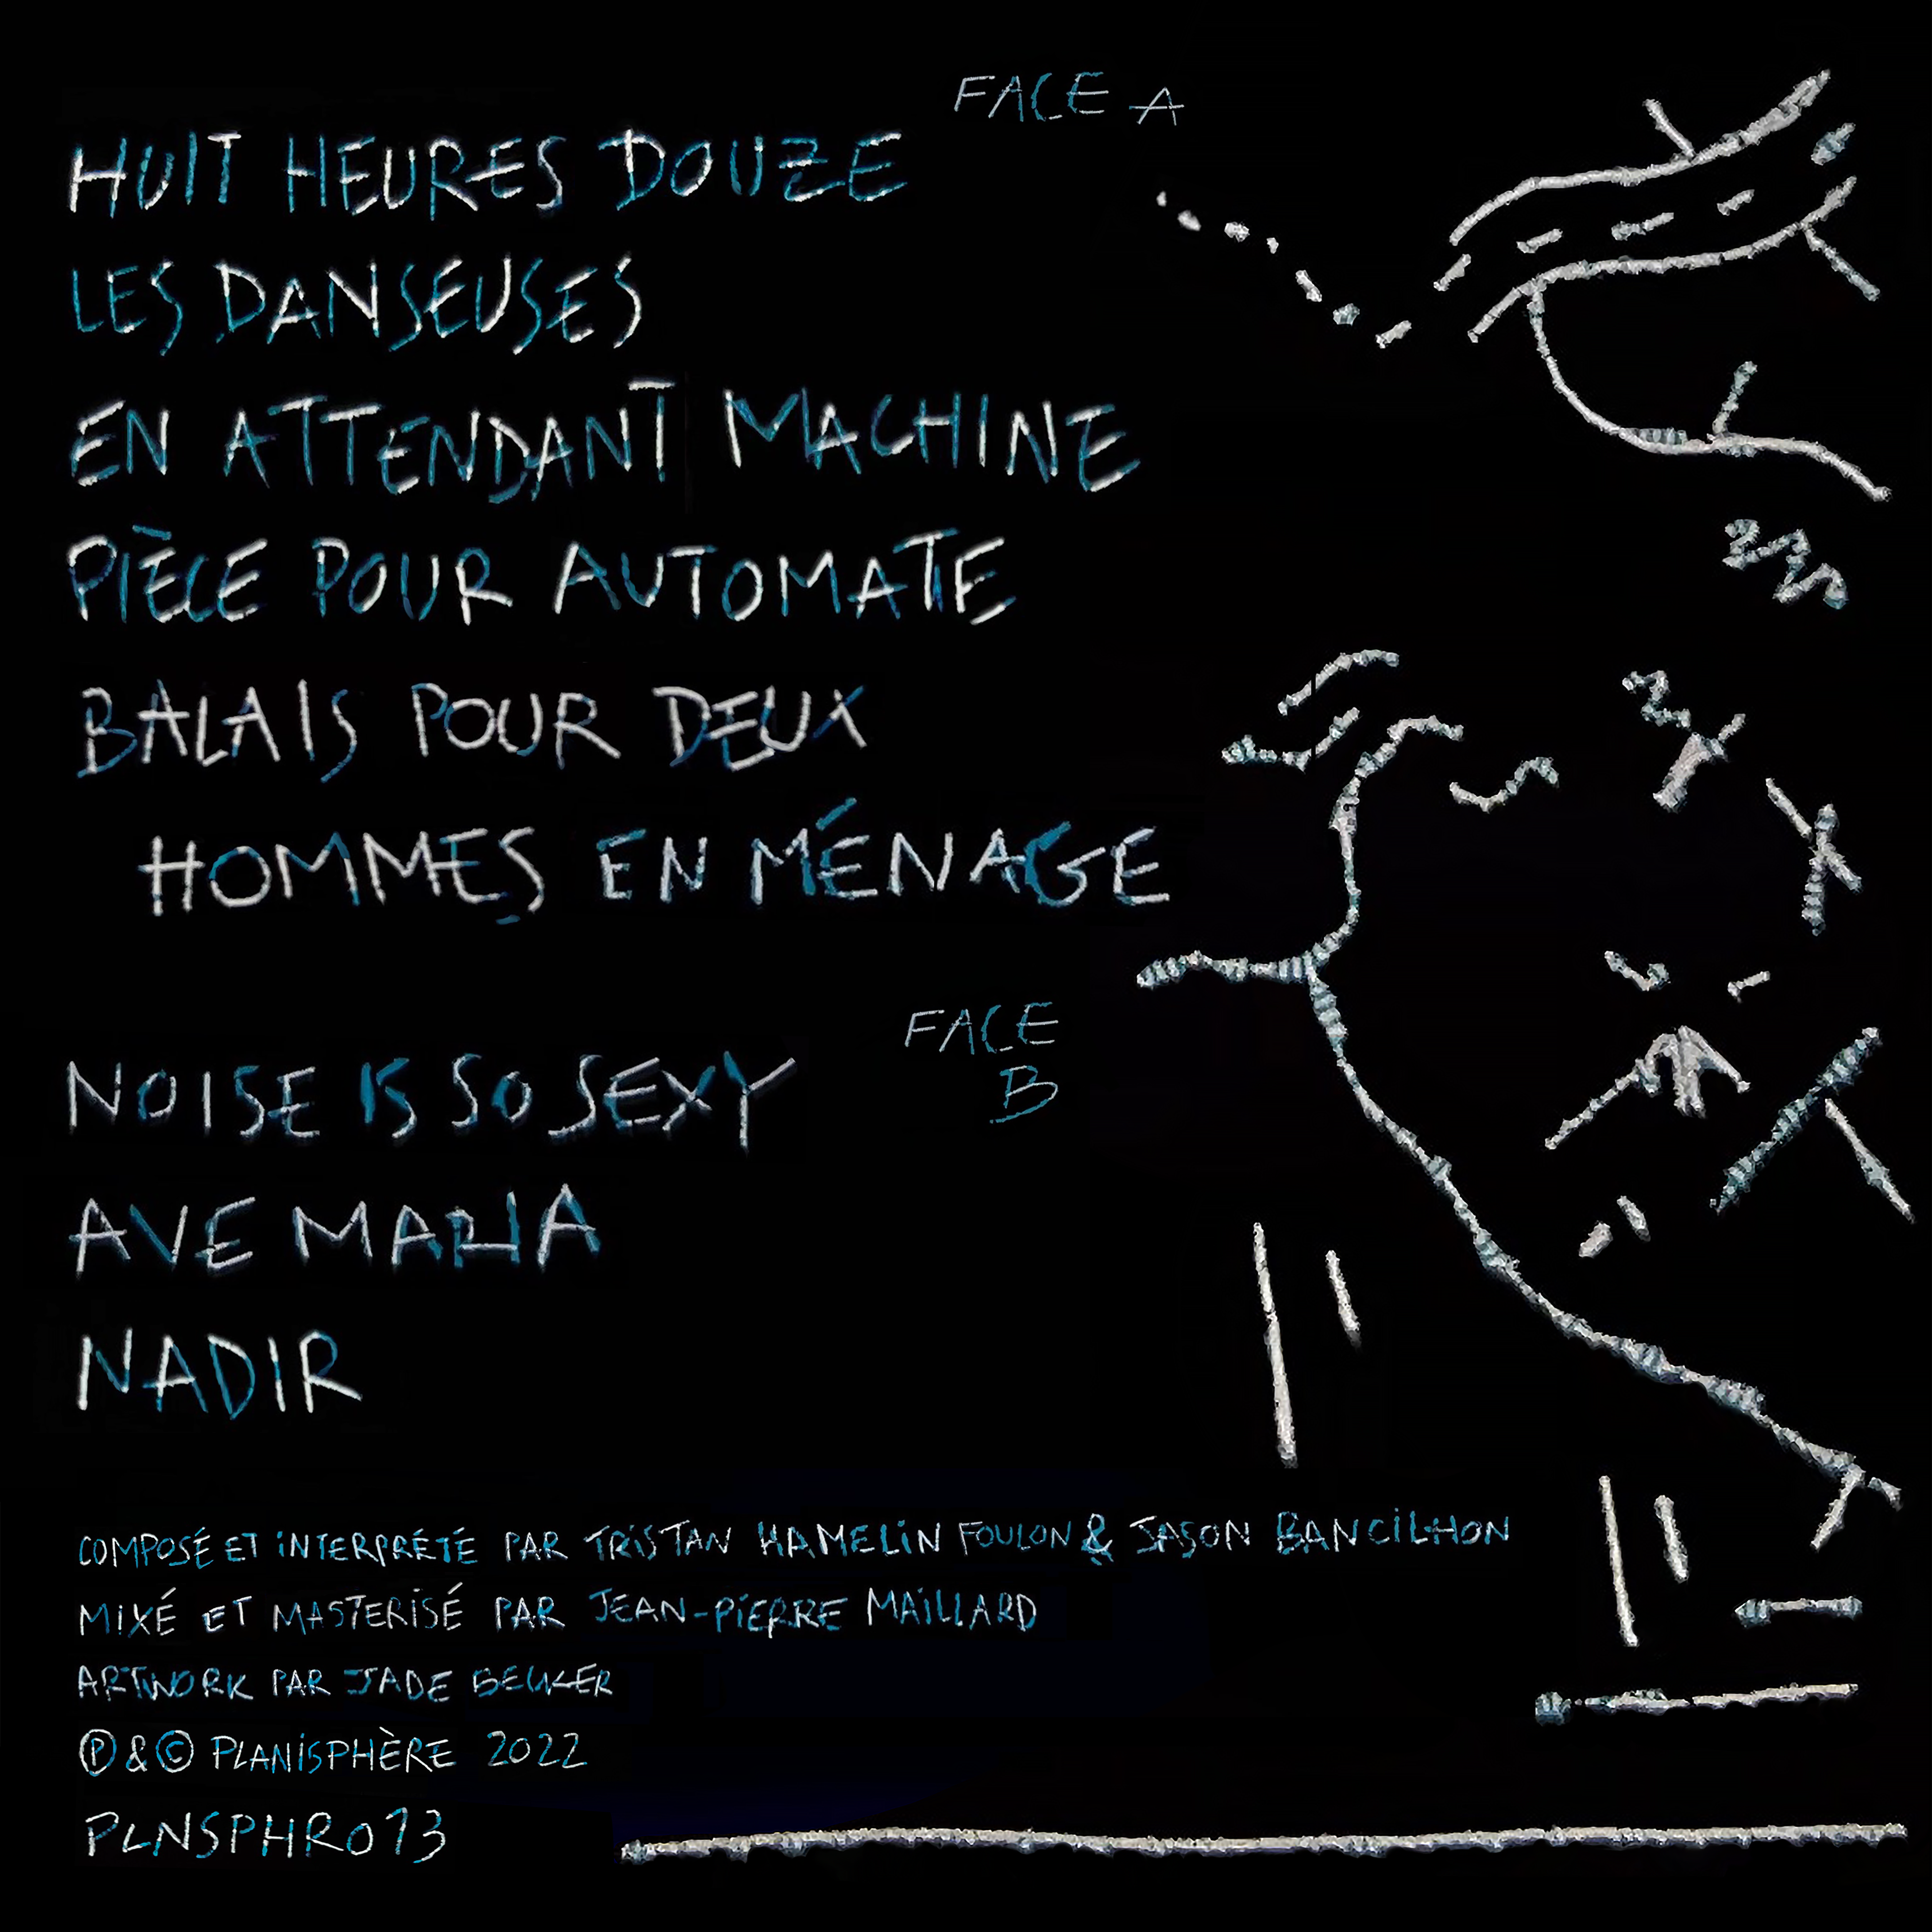 FACE A
HUIT HEURES DOUZE
LES DANSEUSES
EN ATTENDANT MACHINE
PIÈCE POUR AUTOMATE
BALAIS POUR DEUX
HOMMES EN MÉNAGE
FACE
B
NOISE IS SO SEXY
AVE MARIA
NADIR
COMPOSÉ ET INTERPRÉTÉ PAR TRISTAN HAMELIN FOULON & JASON BANCILHON
MIXÉ ET MASTERISÉ PAR JEAN-PIERRE MAILLARD
ARTWORK PAR JADE
Ⓟ & © PLANISPHÈRE 2022
PLNSPHR013